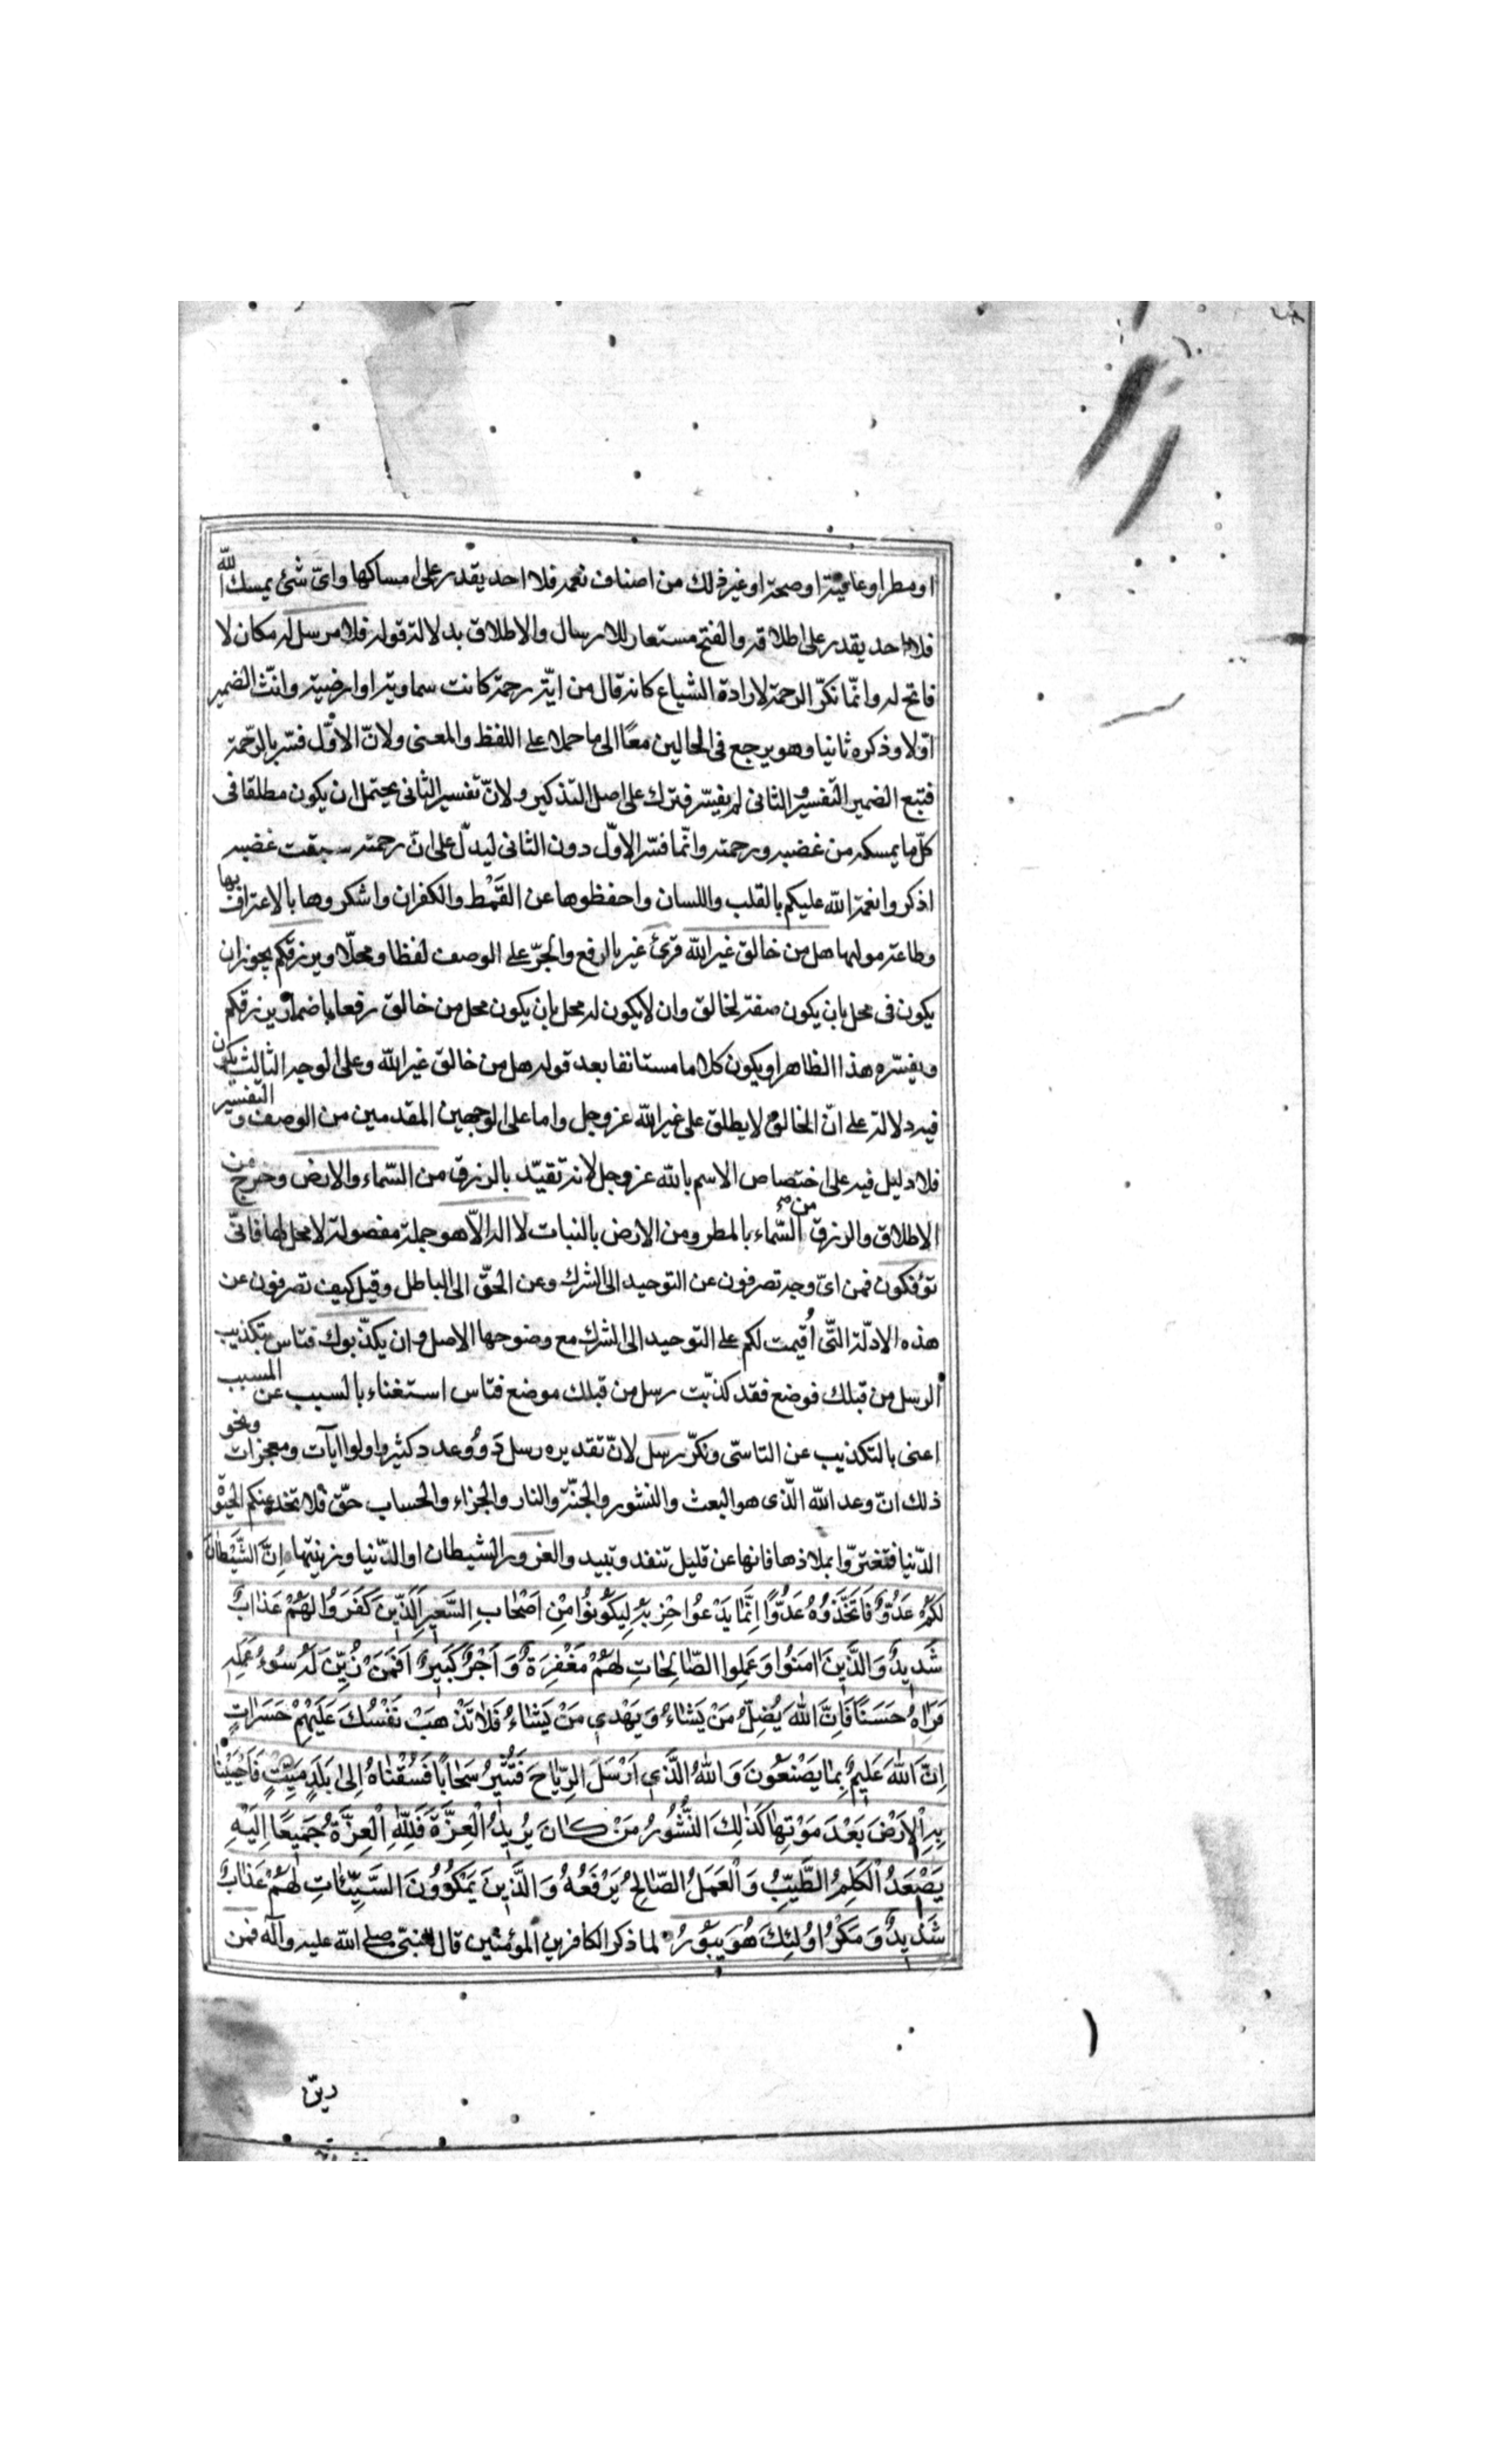 او مطر او عافية او صحة او غير ذلك من اصناف نعمه فلا احد يقدر على امساكها واىّ شئ يمسك الله
فلا احد يقدر على اطلاقه والفتح مستعار للارسال والاطلاق بدلالة قوله فلا مرسل له مكان لا
فاتح له وانّما نكّر الرحمة لارادة الشياع كانه قال من ايّة رحمة كانت سماوية او ارضية وانّث الضمير
اوّلا وذكره ثانيا وهو يرجع فى الحالين معًا الى ما حملا على اللفظ والمعنى ولانّ الاوّل فسّر بالرّحمة
فتبع الضمير التفسير والثانى لم يفسّر فترك على اصل التذكير ولانّ تفسير الثانى يحتمل ان يكون مطلقا فى
كلّ ما يمسكه من غضبه ورحمته وانّما فسّر الاوّل دون الثانى ليدلّ على انّ رحمته سبقت غضبه
اذكروا نعمة الله عليكم بالقلب واللسان واحفظوها عن الغَمْط والكفران واشكروها بالاعتراف بها
وطاعة موليها هل من خالق غير الله قرئ غير بالرفع والجرّ على الوصف لفظا ومحلّا ويرزقكم يجوز ان
يكون فى محل بان يكون صفة لخالق وان لا يكون له محل بان يكون محل من خالق رفعا باضمار يرزقكم
ويفسّره هذا الظاهر او يكون كلاما مستانفا بعد قوله هل من خالق غير الله وعلى الوجه الثالث يكون
فيه دلالة على انّ الخالق لا يطلق على غير الله عز وجل واما على الوجهين المقدمين من الوصف والتفسير
فلا دليل فيه على اختصاص الاسم بالله عز وجل لانه تقيّد بالرزق من السّماء والارض وخرج من
الاطلاق والرزق من السّماء بالمطر ومن الارض بالنبات لا اله الّا هو جملة مفصولة لا محل لها فانّى
تؤفكون فمن اىّ وجه تصرفون عن التوحيد الى الشرك وعن الحقّ الى الباطل وقيل كيف تصرفون عن
هذه الادلّة التّى اُقيمت لكم على التوحيد الى الشرك مع وضوحها الاصل وان يكذّبوك فتاس بتكذيب
الرسل من قبلك فوضع فقد كذبّت رسل من قبلك موضع فتاس استغناء بالسبب عن المسبب
اعنى بالتكذيب عن التاسّى ونكّر رسل لانّ تقديره رسل ذووعدد كثير واولوا ايآت ومعجزات ونحو
ذلك انّ وعد الله الّذى هو البعث والنشور والجنّة والنار والجزاء والحساب حقّ فلا تخدعنكم الحيوة
الدّنيا فتغترّوا بملاذها فانها عن قليل تنفد وتبيد والغرور الشيطان او الدّنيا وزينتها اِنَّ الشَّيْطانَ
لَكُمْ عَدُوٌّ فَاتَّخِذُوهُ عَدُوًّا اِنَّما يَدْعُوا حِزْبَهُ لِيَكُونُوا مِنْ اَصْحابِ السَّعِيرِ اَلَّذِينَ كَفَرُوا لَهُمْ عَذابٌ
شَدِيدٌ وَالَّذِينَ امَنُوا وَعَمِلُوا الصّالِحاتِ لَهُمْ مَغْفِرَةٌ وَاَجْرٌ كَبِيرٌ اَفَمَنْ زُيِّنَ لَهُ سُوءُ عَمَلِهِ
فَرَاهُ حَسَنًا فَاِنَّ اللهَ يُضِلُّ مَنْ يَشاءُ وَيَهْدِى مَنْ يَشاءُ فَلا تَذْهَبْ نَفْسُكَ عَلَيْهِمْ حَسَراتٍ
اِنَّ اللهَ عَلِيمٌ بِما يَصْنَعُونَ وَاللهُ الَّذِى اَرْسَلَ الرِّياحَ فَتُثِيرُ سَحابًا فَسُقْناهُ اِلى بَلَدٍ مَيِّتٍ فَاَحْيَيْنا
بِهِ الْاَرْضَ بَعْدَ مَوْتِها كَذلِكَ النُّشُورُ مَنْ كانَ يُرِيدُ الْعِزَّةَ فَلِلّهِ الْعِزَّةُ جَمِيعًا اِلَيْهِ
يَصْعَدُ الْكَلِمُ الطَّيِّبُ وَالْعَمَلُ الصّالِحُ يَرْفَعُهُ وَالَّذِينَ يَمْكُرُونَ السَّيِّئاتِ لَهُمْ عَذابٌ
شَدِيدٌ وَمَكْرُ اوُلئِكَ هُوَ يَبُورُ لما ذكر الكافرين المؤمنين قال لنبىّ صلى الله عليه وآله فمن